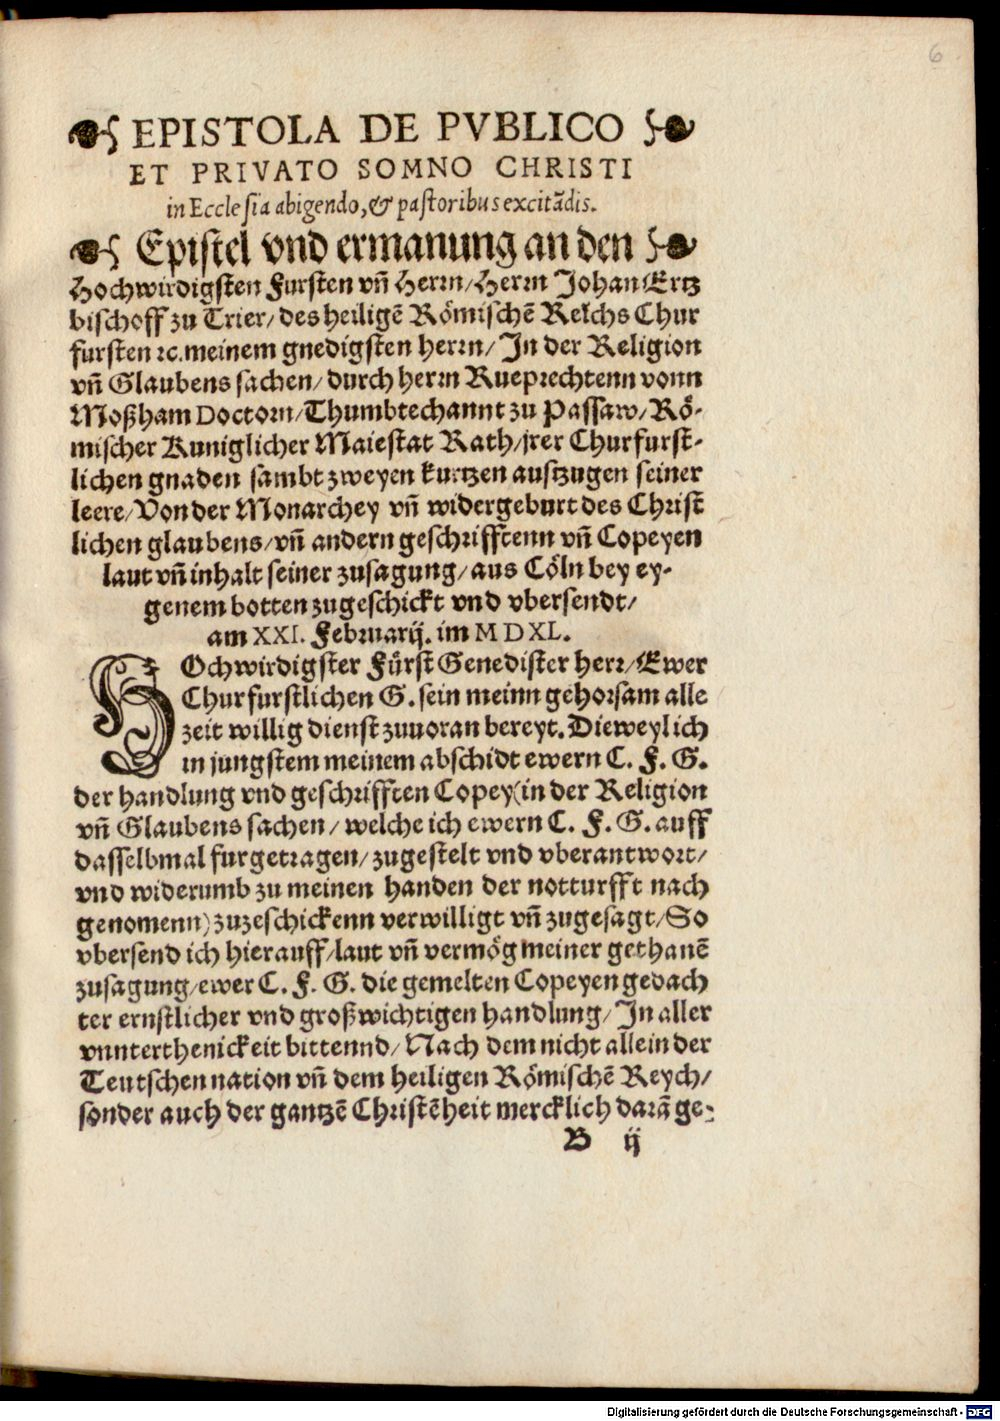 6
EPISTOLA DE PVBLICO
ET PRIVATO SOMNO CHRISTI
in Ecclesia abigendo, & pastoribus excitādis.
Epistel vnd ermanung an den
Hochwirdigsten Fursten vñ Herrn/Herrn Johan Ertz
bischoff zu Trier/des heiligē Römischē Reichs Chur
fursten ꝛc. meinem gnedigsten herrn/ In der Religion
vñ Glaubens sachen/durch herrn Rueprechtenn vonn
Moßham Doctorn/Thumbtechannt zu Passaw/Rö-
mischer Kuniglicher Maiestat Rath/jrer Churfurst-
lichen gnaden sambt zweyen kurtzen ausszugen seiner
leere/Von der Monarchey vñ widergeburt des Christ
lichen glaubens/vñ andern geschrifftenn vñ Copeyen
laut vñ inhalt seiner zusagung/aus Cöln bey ey-
genem botten zugeschickt vnd vbersendt/
am XXI. Februarij. im MDXL.
HOchwirdigster Fürst Genedister herr/Ewer
Churfurstlichen G. sein meinn gehorsam alle
zeit willig dienst zuuoran bereyt. Dieweyl ich
in jungstem meinem abschidt ewern C. F. G.
der handlung vnd geschrifften Copey(in der Religion
vñ Glaubens sachen/welche ich ewern C. F. G. auff
dasselbmal furgetragen/zugestelt vnd vberantwort/
vnd widerumb zu meinen handen der notturfft nach
genomenn)zuzeschickenn verwilligt vñ zugesagt/So
vbersend ich hierauff/laut vñ vermög meiner gethanē
zusagung/ewer C. F. G. die gemelten Copeyen gedach
ter ernstlicher vnd großwichtigen handlung/In aller
vnnterthenickeit bittennd/Nach dem nicht allein der
Teutschen nation vñ dem heiligen Römischē Reych/
sonder auch der gantzē Christēheit mercklich darā ge-
B ij
Digitalisierung gefördert durch die Deutsche Forschungsgemeinschaft - DFG